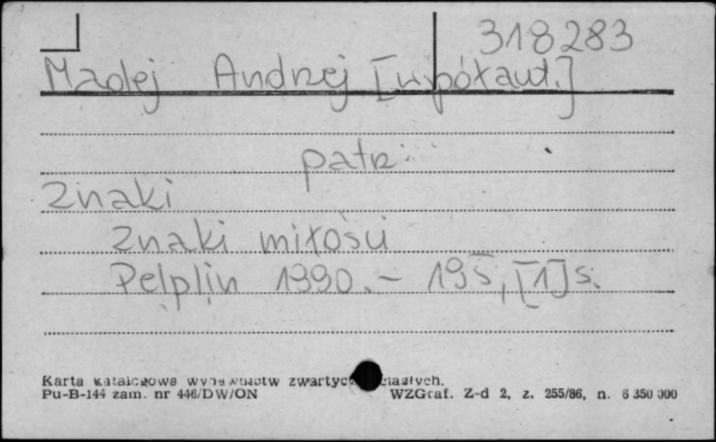 318283
Madej Andrzej [współaut.]
patrz
Znaki
Znaki miłości
Pelplin 1990. - 19 s, [1] s.
Karta katalogowa wydawnictw zwartych ciągłych.
Pu-B-144 zam. nr 446/DW/ON
WZGraf. Z-d 2, z. 255/86, n. 6 350 000